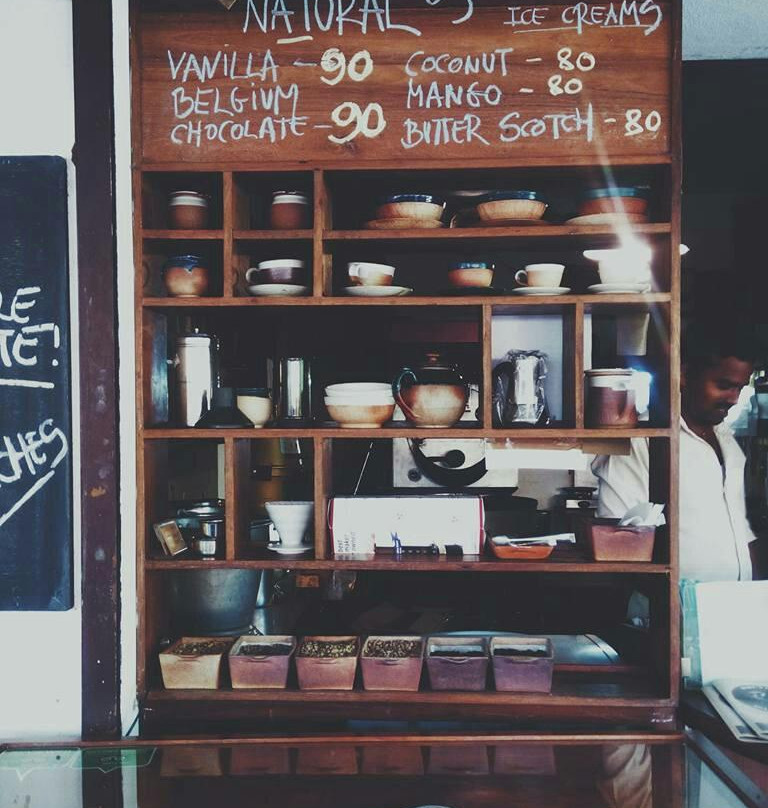 NATURAL
ICE CREAMS
VANILLA - 90
BELGIUM
CHOCOLATE - 90
COCONUT - 80
MANGO - 80
BUTTER SCOTCH - 80